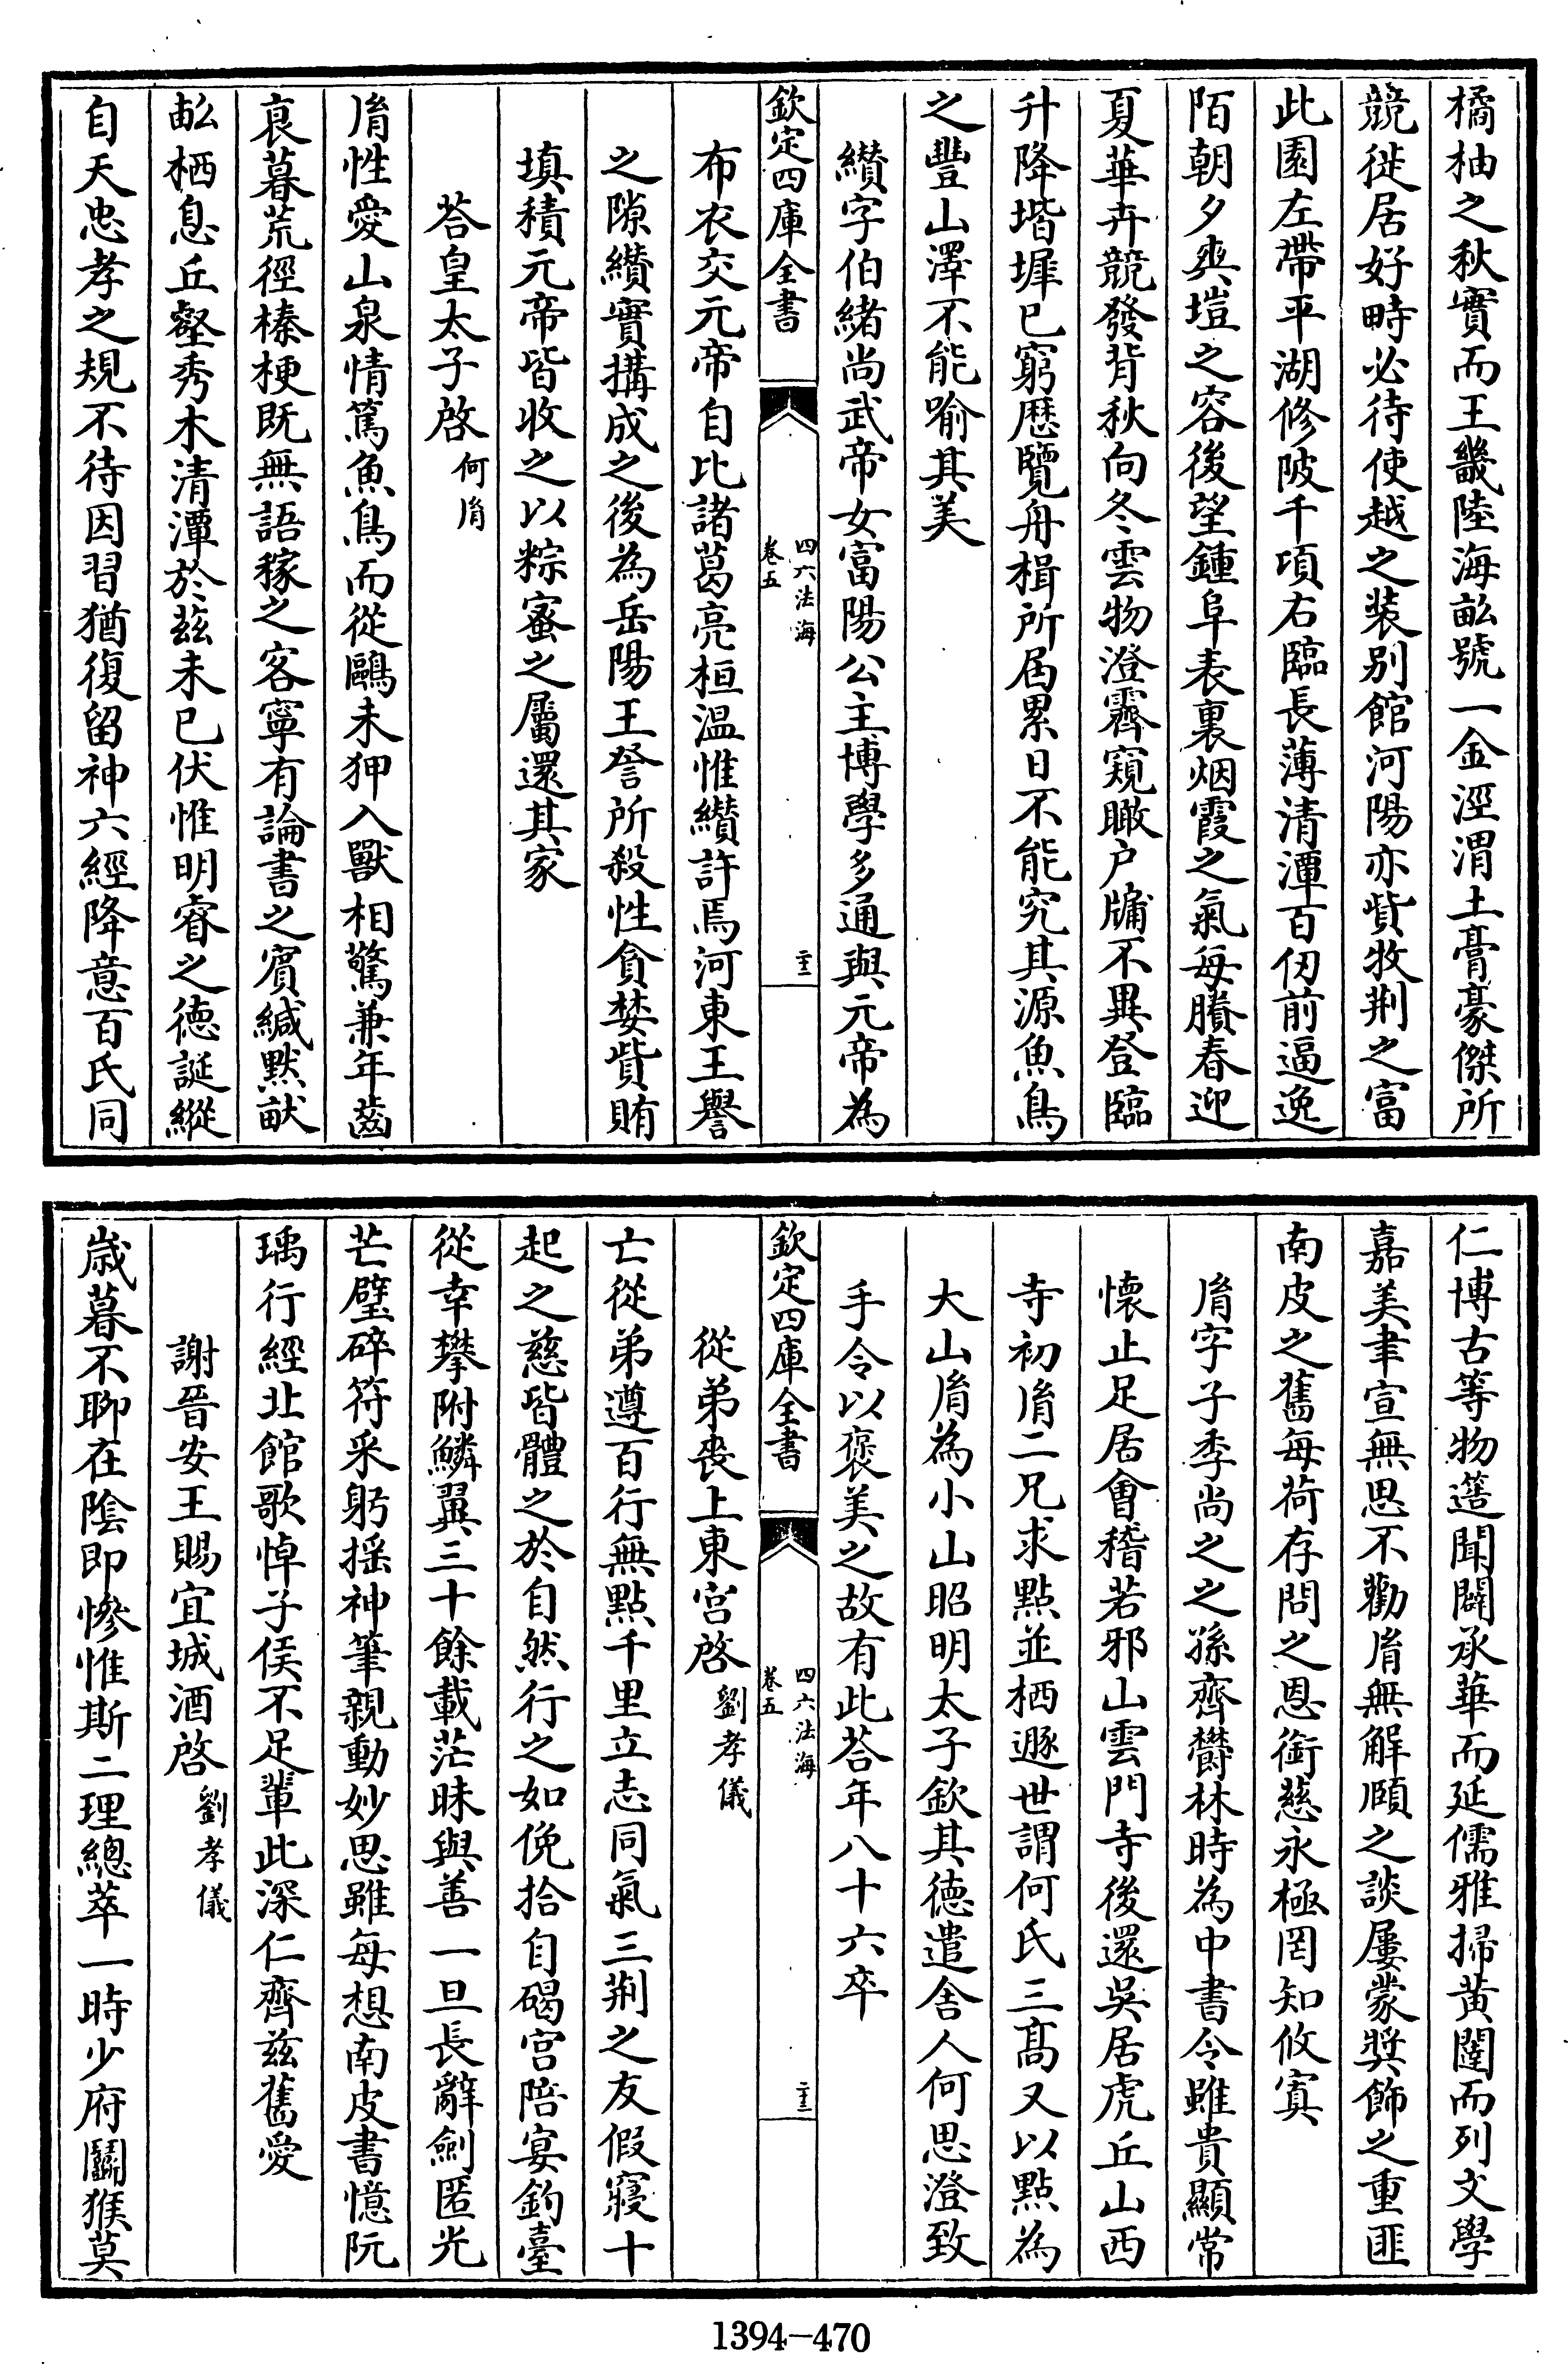 橘柚之秋實而王畿陸海畝號一金涇渭土膏豪傑所
競徙居好畤必待使越之装别館河陽亦貲牧荆之富
此園左帶平湖修陂千頃右臨長薄清潭百仞前逼逸
陌朝夕爽塏之容後望鍾阜表裏烟霞之氣每賸春迎
夏華卉競發背秋向冬雲物澄霽窺瞰户牖不異登臨
升降堦墀已窮歴覽舟楫所届累日不能究其源魚鳥
之豐山澤不能喻其美
纘字伯緒尚武帝女富陽公主博學多通與元帝為
欽定四庫全書
四六法海
卷五
布衣交元帝自比諸葛亮桓温惟纘許焉河東王譽
之隙纘實搆成之後為岳陽王詧所殺性貪婪貲賄
填積元帝皆收之以粽蜜之屬還其家
荅皇太子啓 何胤
胤性愛山泉情篤魚鳥而從鷗未狎入獸相驚兼年齒
衰暮荒徑榛梗既無語稼之客寧有論書之賓緘默畎
畝栖息丘壑秀木清潭於兹未已伏惟明睿之徳誕縱
自天忠孝之規不待因習猶復留神六經降意百氏同
仁博古等物簉聞闢承華而延儒雅掃黄闥而列文學
嘉美聿宣無思不勸胤無解頤之談屢蒙奬飾之重匪
南皮之舊每荷存問之恩銜慈永極罔知攸寘
胤字子季尚之之孫齊欝林時為中書令雖貴顯常
懷止足居會稽若邪山雲門寺後還吳居虎丘山西
寺初胤二兄求點並栖遯世謂何氏三髙又以點為
大山胤為小山昭明太子欽其徳遣舍人何思澄致
手令以褒美之故有此荅年八十六卒
欽定四庫全書
四六法海
卷五
從弟喪上東宫啓 劉孝儀
亡從弟遵百行無點千里立志同氣三荆之友假寢十
起之慈皆體之於自然行之如俛拾自碣宫陪宴釣臺
從幸攀附鱗翼三十餘載茫昧與善一旦長辭劍匿光
芒璧碎符采躬揺神筆親動妙思雖每想南皮書憶阮
瑀行經北館歌悼子侯不足輩此深仁齊兹舊愛
謝晉安王賜宜城酒啓 劉孝儀
歳暮不聊在陰即慘惟斯二理總萃一時少府鬭猴莫
1394-470